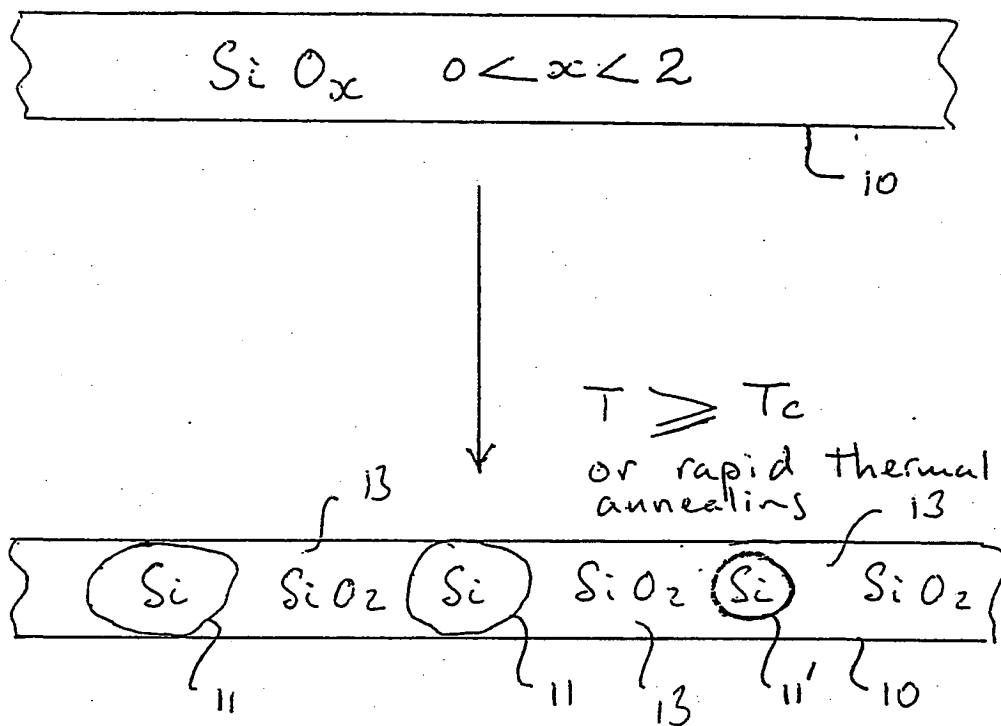 SiOx 0<x<2
10
T ≧ Tc
or rapid thermal
annealing
13
13
Si SiO2 Si SiO2 Si SiO2
11
11
13
11'
10